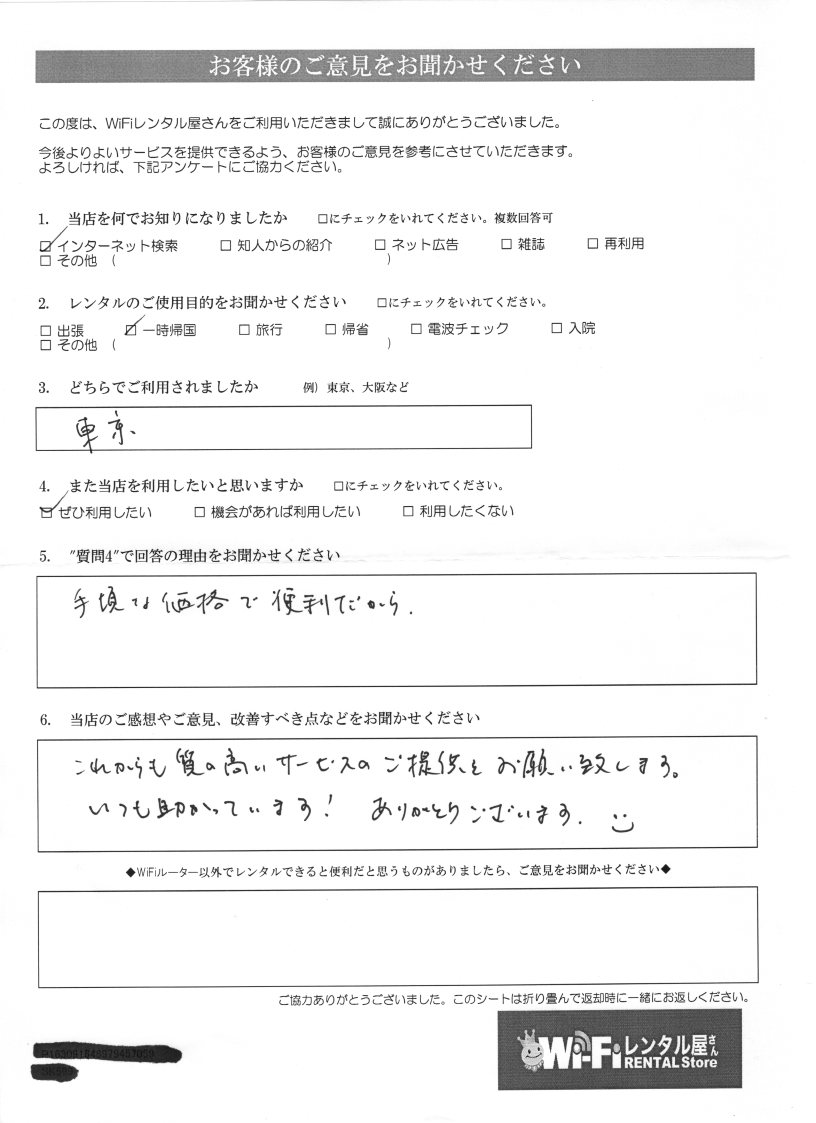 お客様のご意見をお聞かせください
この度は、WiFiレンタル屋さんをご利用いただきまして誠にありがとうございました。
今後よりよいサービスを提供できるよう、お客様のご意見を参考にさせていただきます。
よろしければ、下記アンケートにご協力ください。
1. 当店を何でお知りになりましたか □にチェックをいれてください。複数回答可
☑ インターネット検索 □ 知人からの紹介 □ ネット広告 □ 雑誌 □ 再利用
□ その他 ( )
2. レンタルのご使用目的をお聞かせください □にチェックをいれてください。
□ 出張 ☑ 一時帰国 □ 旅行 □ 帰省 □ 電波チェック □ 入院
□ その他 ( )
3. どちらでご利用されましたか 例）東京、大阪など
東京、
4. また当店を利用したいと思いますか □にチェックをいれてください。
☑ ぜひ利用したい □ 機会があれば利用したい □ 利用したくない
5. "質問4"で回答の理由をお聞かせください
手頃な価格で便利だから.
6. 当店のご感想やご意見、改善すべき点などをお聞かせください
これからも質の高いサービスのご提供をお願い致します。
いつも助かっています! ありがとうございます.
◆WiFiルーター以外でレンタルできると便利だと思うものがありましたら、ご意見をお聞かせください◆
ご協力ありがとうございました。このシートは折り畳んで返却時に一緒にお返しください。
Wi-Fiレンタル屋さん
RENTAL Store